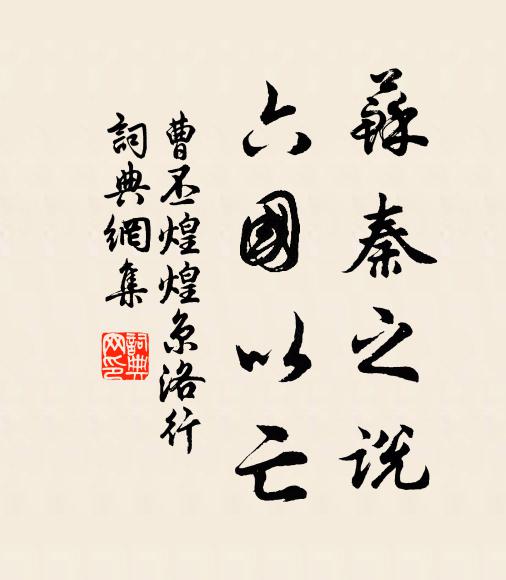 蘇秦之说
六國以亡
曹丕煌煌京洛行
詞典網集
詞典
网印